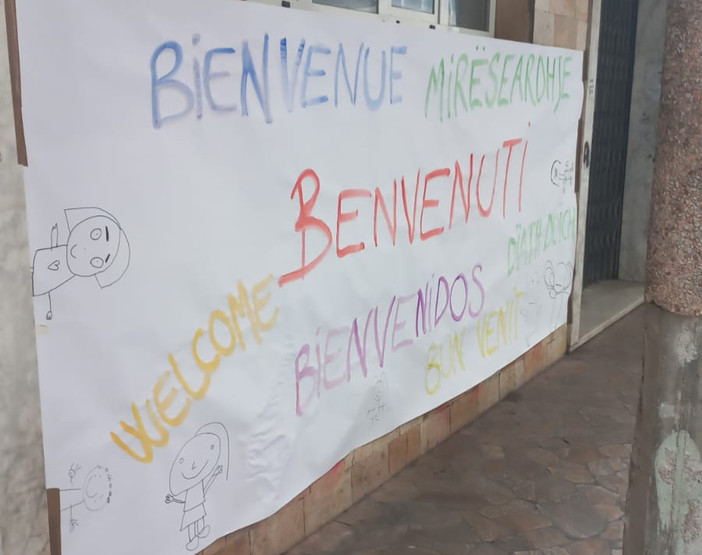 BiENVENUE
MiRËSEARDHJE
BENVENUTi
WELCOME
BiENVENiDOS
BUN VENiT